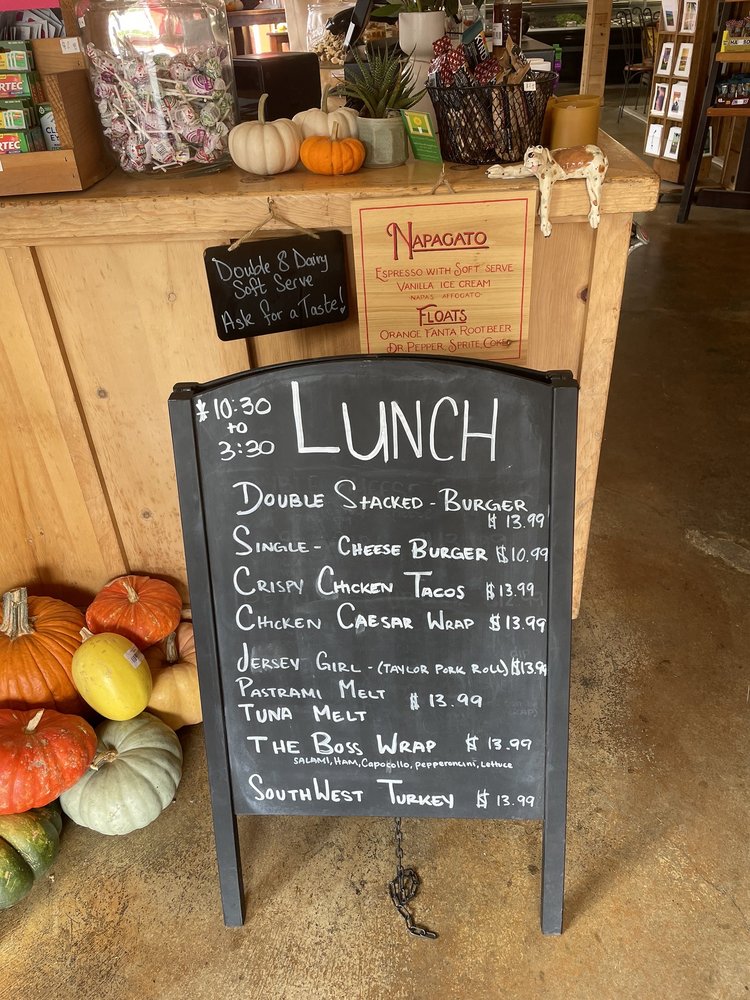 Double 8 Dairy
Soft Serve
Ask for a Taste!
NAPAGATO
ESPRESSO WITH SOFT SERVE
VANILLA ICE CREAM
NAPA'S AFFOGATO
FLOATS
ORANGE FANTA ROOTBEER
DR. PEPPER SPRITE COKE
10:30
to
3:30
LUNCH
DOUBLE STACKED - BURGER
$ 13.99
SINGLE - CHEESE BURGER $10.99
CRISPY CHICKEN TACOS $13.99
CHICKEN CAESAR WRAP $13.99
JERSEY GIRL - (TAYLOR PORK ROLL) $13.99
PASTRAMI MELT $ 13.99
TUNA MELT
THE BOSS WRAP $ 13.99
SALAMI, HAM, Capocollo, pepperoncini, Lettuce
SOUTHWEST TURKEY $ 13.99